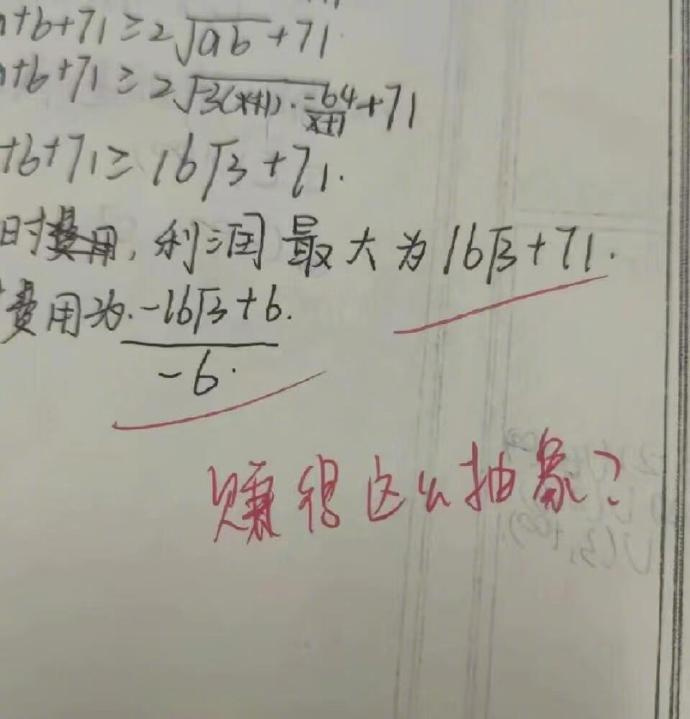 +b+71≥2√ab+71
+b+71≥2√3(x+1)·-64/x+1+71
+b+71≥16√3+71.
时费用,利润最大为16√3+71.
费用为.-16√3+6./-6.
赚得这么抽象?